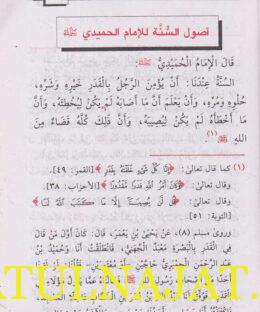 أصول السُّنَّة للإمام الحميدي ﷺ
قَالَ الإِمَامُ الْحُمَيْدِيُّ ﷺ:
السُّنَّةُ عِنْدَنَا: أَنْ يُؤْمِنَ الرَّجُلُ بِالْقَدَرِ خَيْرِهِ وَشَرِّهِ،
حُلْوِهِ وَمُرِّهِ، وَأَنْ يَعْلَمَ أَنَّ مَا أَصَابَهُ لَمْ يَكُنْ لِيُخْطِئَهُ، وَأَنَّ
مَا أَخْطَأَهُ لَمْ يَكُنْ لِيُصِيبَهُ، وَأَنَّ ذَلِكَ كُلَّهُ قَضَاءٌ مِنَ
اللهِ (١).
(١) كما قال تعالى: ﴿إِنَّا كُلَّ شَيْءٍ خَلَقْنَاهُ بِقَدَرٍ﴾ [القمر: ٤٩].
وقال تعالى: ﴿وَكَانَ أَمْرُ اللَّهِ قَدَرًا مَقْدُورًا﴾ [الأحزاب: ٣٨].
وقال تعالى: ﴿قُلْ لَنْ يُصِيبَنَا إِلَّا مَا كَتَبَ اللَّهُ لَنَا﴾
[التوبة: ٥١]
وروى مسلم (٨)، عَنْ يَحْيَى بْنِ يَعْمَرَ، قَالَ: كَانَ أَوَّلَ مَنْ قَالَ
فِي الْقَدَرِ بِالْبَصْرَةِ مَعْبَدٌ الْجُهَنِيُّ، فَانْطَلَقْتُ أَنَا وَحُمَيْدُ بْنُ
ATULNAJAT.